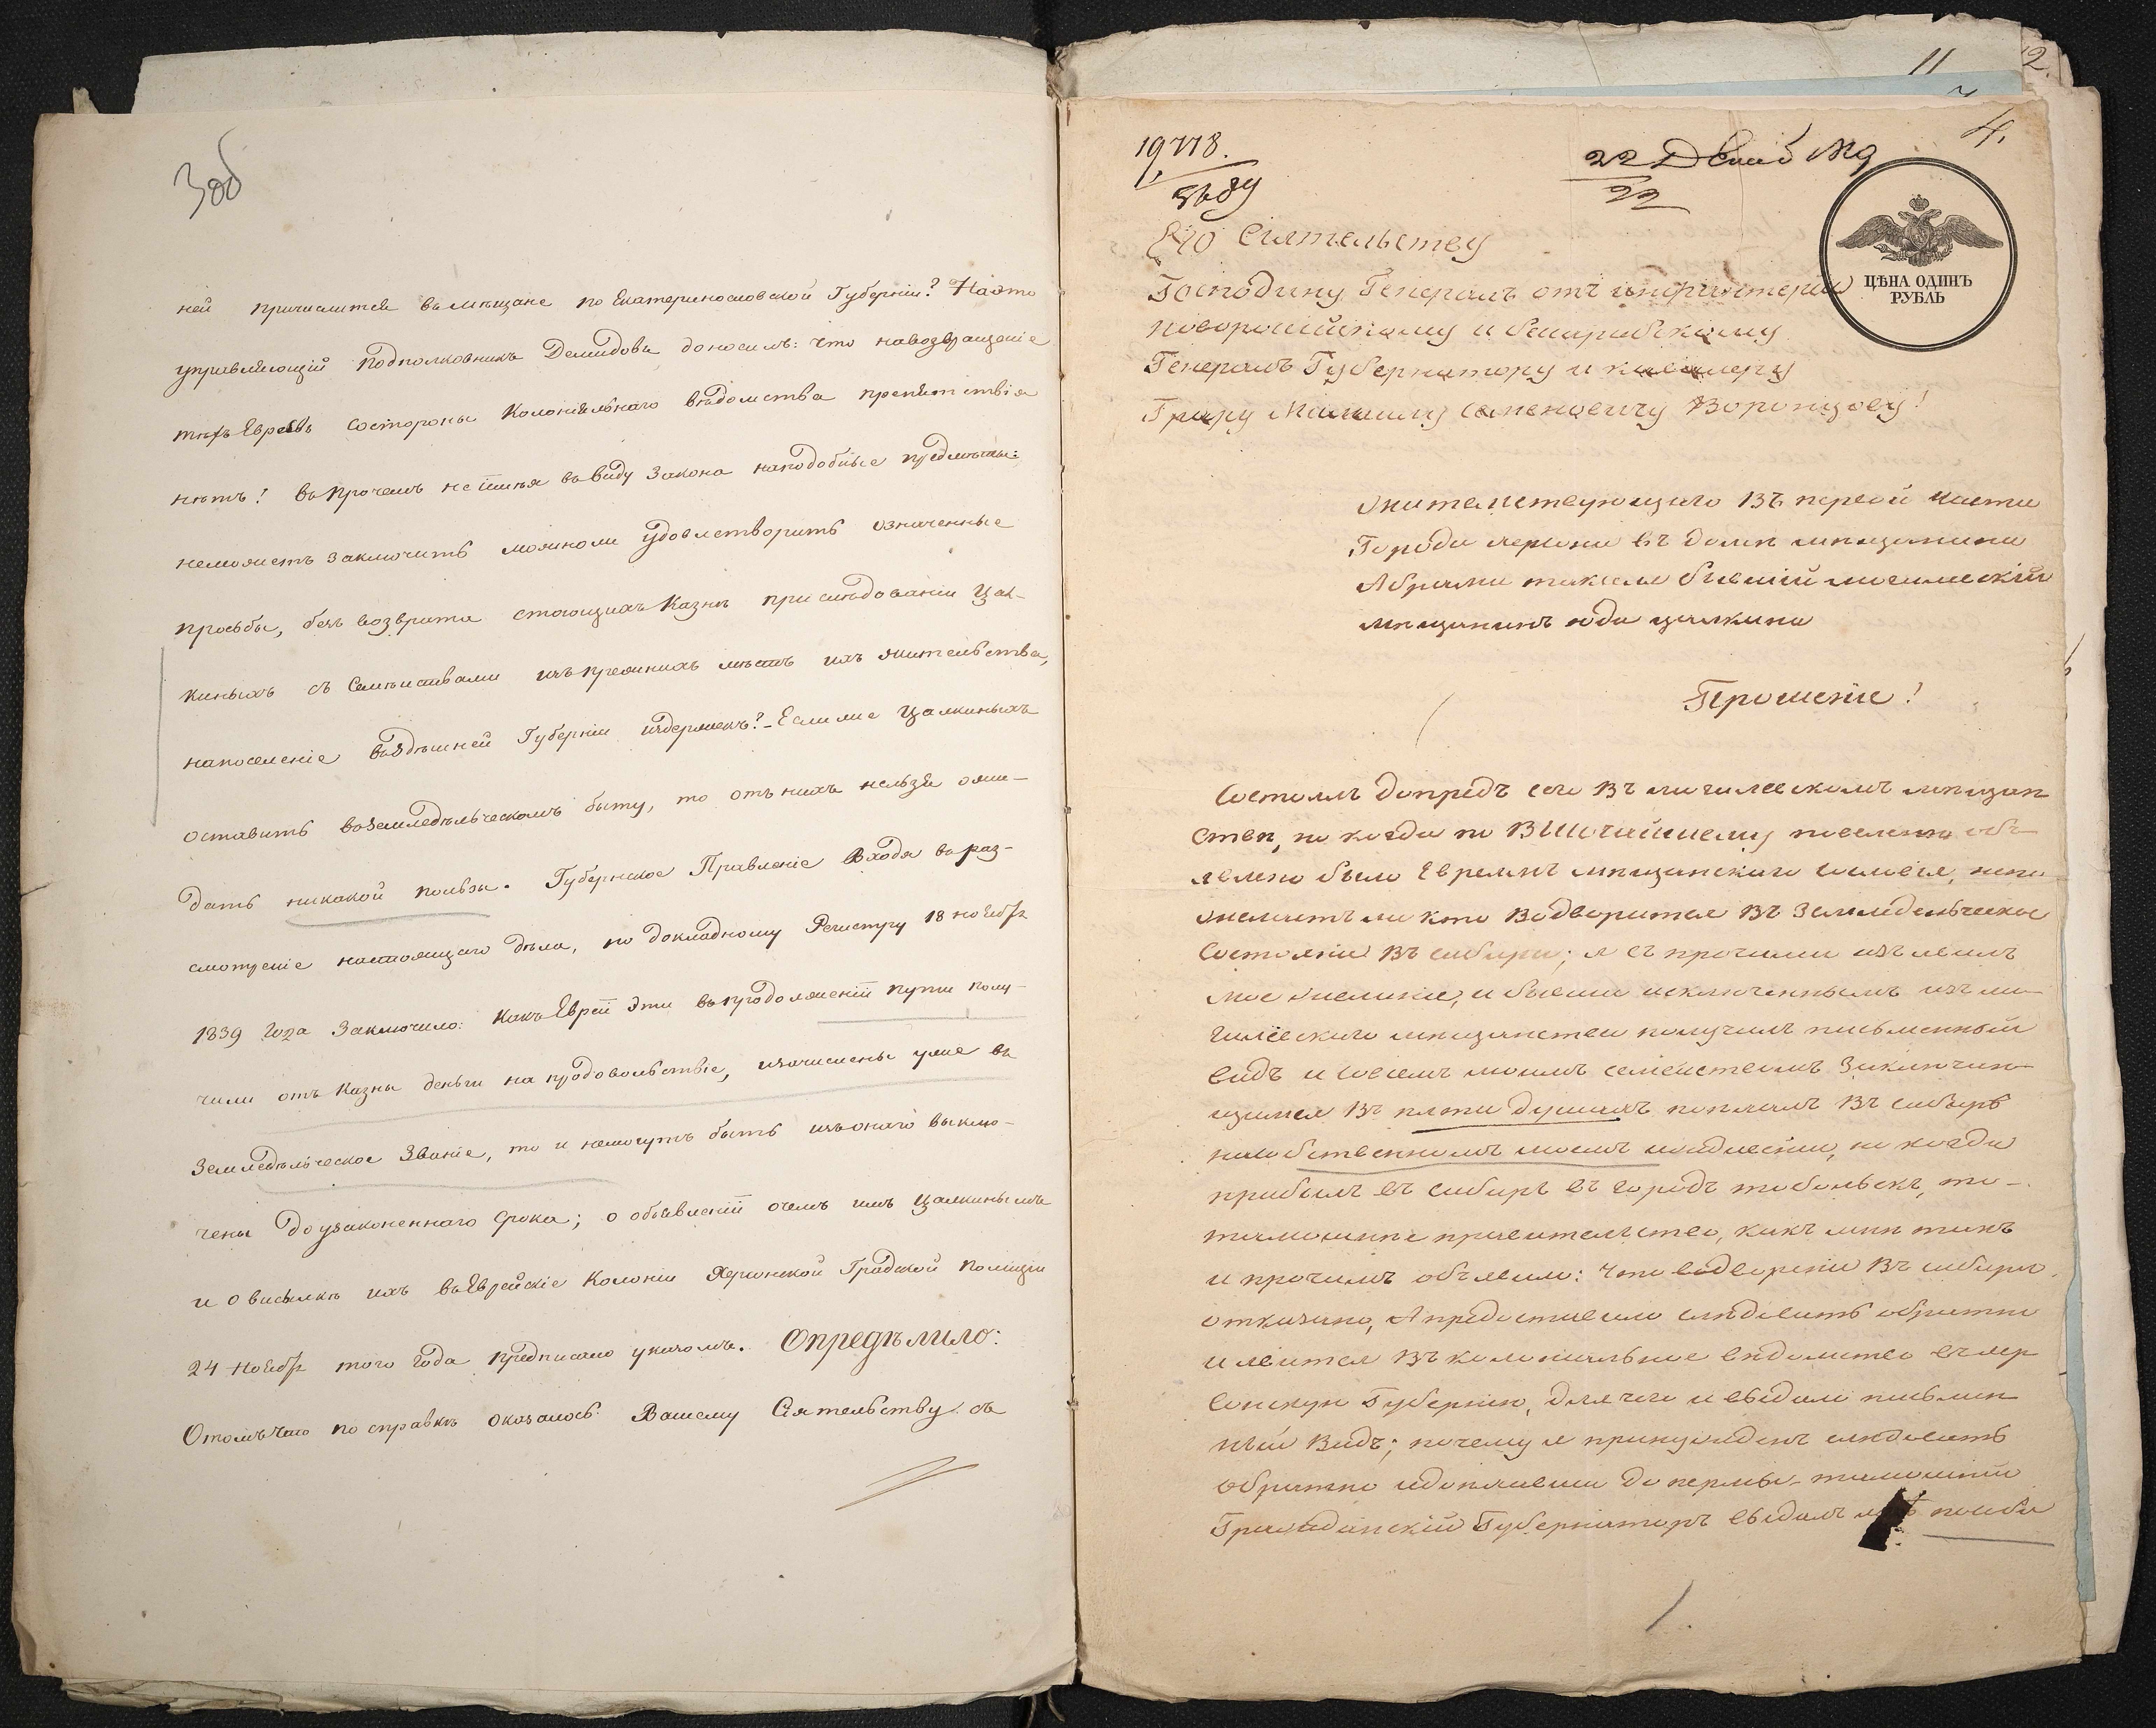 3об
ней причислится въ мещане по Екатеринославской Губерніи? На это
управляющій подполковникъ Демидовъ доносилъ: что на возвращеніе
тѣхъ Евреевъ со стороны Колоніяльнаго вѣдомства препятствія
нѣтъ! впрочемъ не имѣя въ виду закона на подобные предметы:
неможетъ заключить можноли удовлетворить означенные
просьбы, безъ возврата стоющихъ Казнѣ при слѣдованіи Цал-
киныхъ съ Семѣйствами изъ прежнихъ мѣстъ ихъ жительства,
на поселеніе въ здѣшней Губерніи издержекъ? - Если же Цалкиныхъ
оставить въ земледѣльческомъ быту, то отъ нихъ нельзя ожи-
дать никакой пользы. Губернское Правленіе входя въ раз-
смотреніе настоящаго дѣла, по докладному Регистру 18 Ноябр
1839 года Заключило: Какъ Евреи эти въ продолженіи пути полу-
чили отъ Казны деньги на продовольствіе, изачислены уже въ
Земледѣльческое Званіе, то и немогутъ быть изъ онаго выклю-
чены до узаконеннаго срока; о объявленіи очемъ имъ Цалкинымъ
и о высылкѣ ихъ въ Еврейскіе Колоніи Херсонской Градской Полиціи
24 Ноябр того Года предписано указомъ. Опредѣлило:
О томъ что по справкѣ оказалось Вашему Сіятельству съ
11
2.
4.
19,778.
22
22
Его Сіятельству
Господину Генералъ отъ инфантеріи
новороссійскому и бессарабскому
Генералъ Губернатору и кавалеру
Графу Михаилу Семеновичу Воронцову!
ЦѢНА ОДИНЪ
РУБЛЬ
жительствующаго въ первой части
Города херсона въ доме мпщанина
Абрама бывший могилевскій
мпщанинъ юда цалкина
Прошеніе!
Состоялъ допредъ сего въ могилевскомъ мпщан
ствп, но когда по Высочайшему повеленію объ
явлено было Евреямъ мпщанскаго сословія, непо
желаетъ ли кто водворится въ земледельческое
состояніе въ сибири; я съ прочими изъявилъ
мое желаніе, и бывши исключеннымъ изъ мо
гилёвскаго мпщанства получилъ письменный
видъ и совсемъ моимъ семействомъ заключаю
щимся въ пяти душахъ поехалъ въ сибирь
насобственномъ моемъ иждивеніи, но когда
прибылъ въ сибирь въ городъ тобольскъ, то
тамошнпе правительство, какъ мнп такъ
и прочимъ объявило: что водвореніе въ сибирь
отказано, А предоставило слпдовать обратно
и явится въ колоніяльное впдомство въ хер
сонскую Губернію, для чего и выдали письмен
ный видъ; почему я принужденъ слпдовать
обратно идопхавши до пермы тамошній
Гражданскій Губернаторъ выдалъ пособи